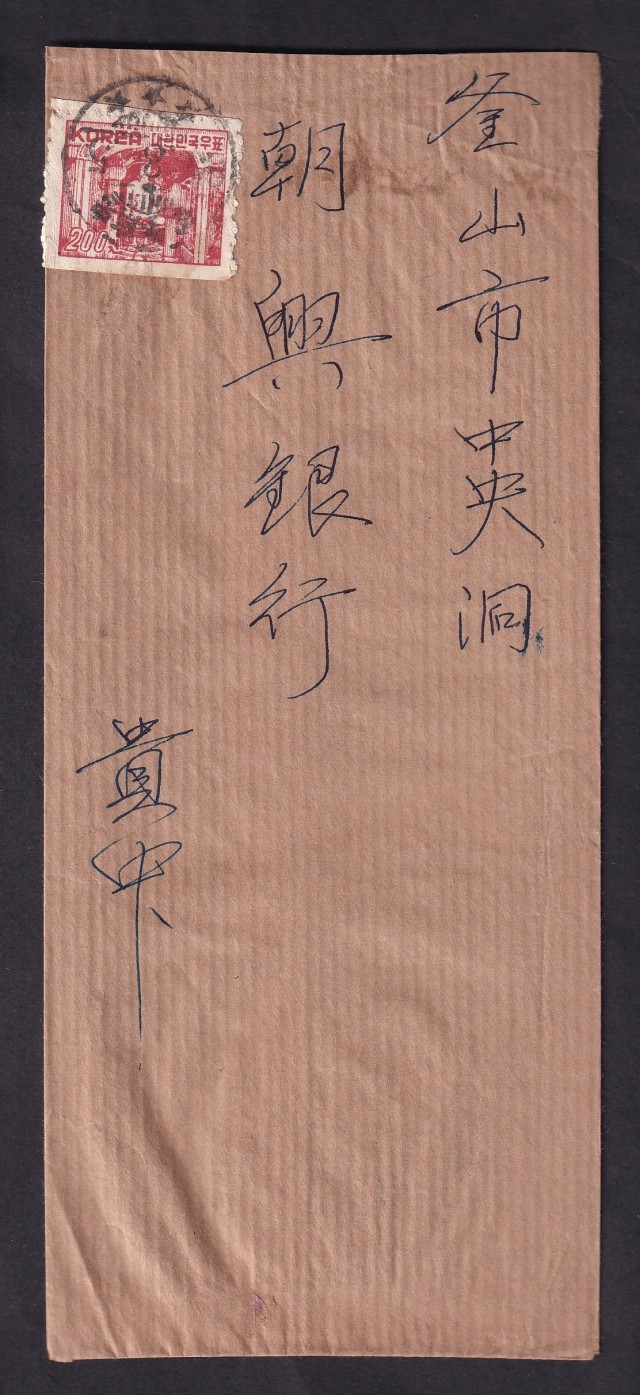 釜山市中央洞
朝興銀行
貴中
KOREA 대한민국우표
200